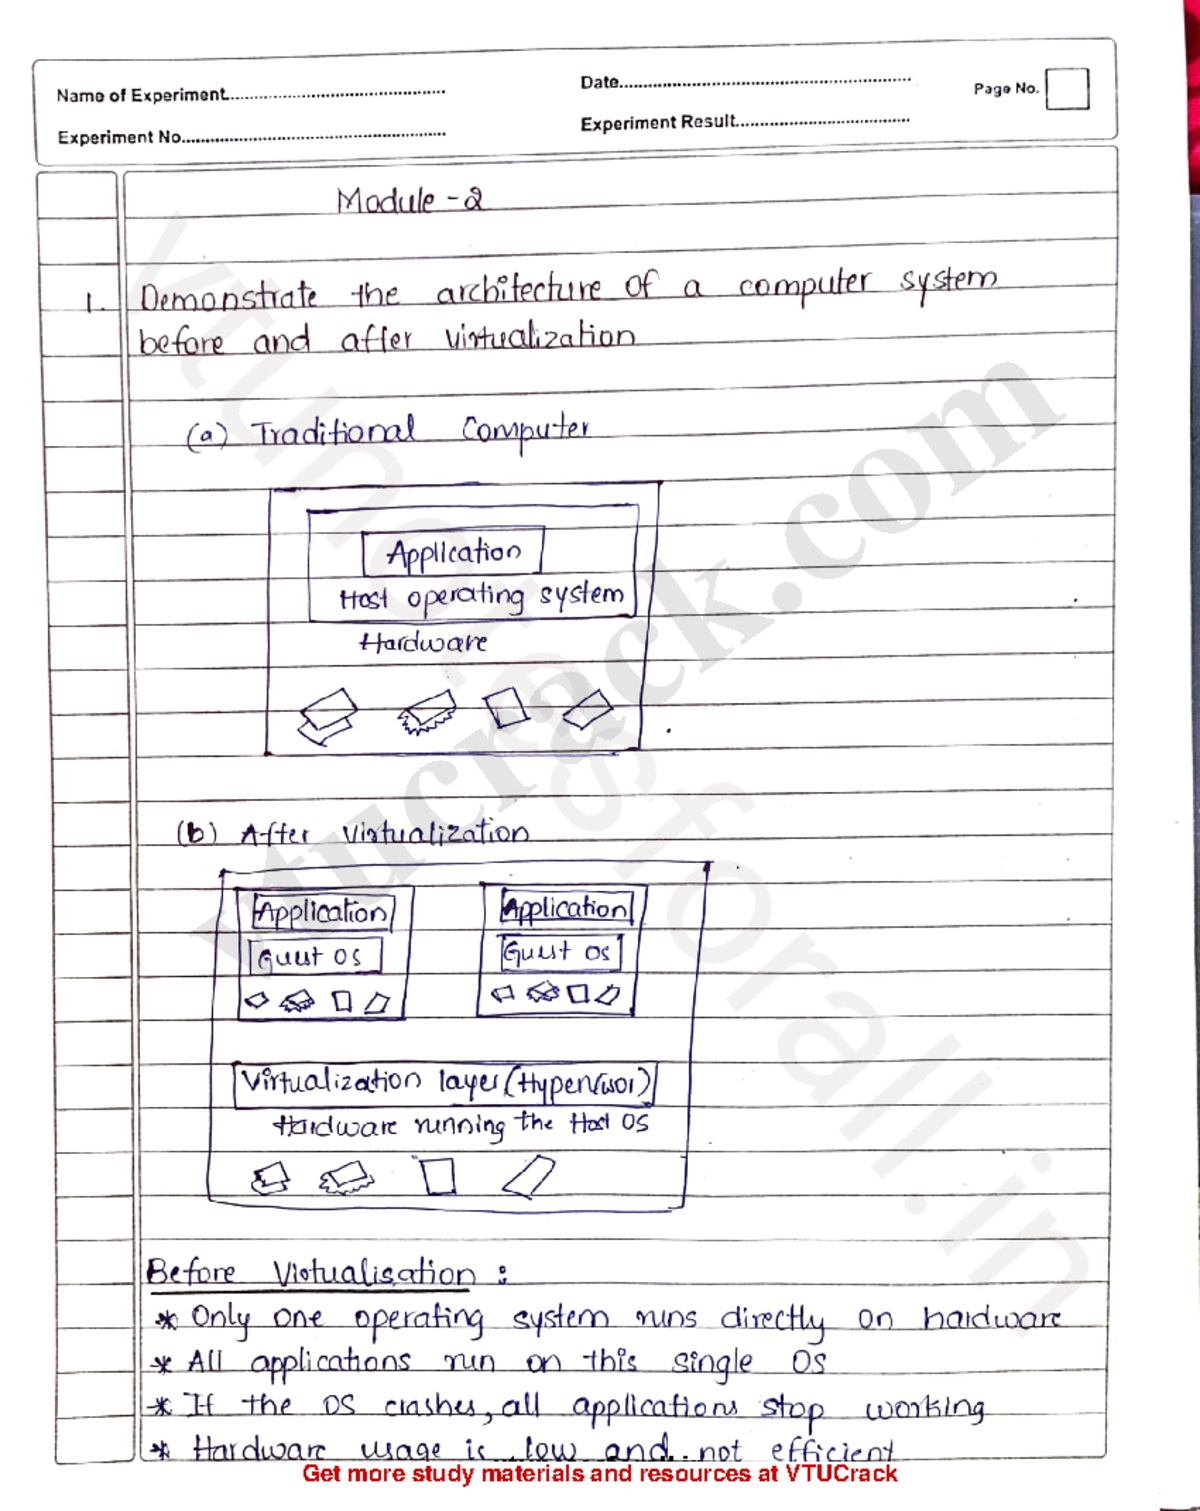 Name of Experiment
Date
Page No.
Experiment No
Experiment Result
Module - 2
1. Demonstrate the architecture of a computer system
before and after virtualization
(a) Traditional Computer
Application
Host operating system
Hardware
(b) After Virtualization
Application Application
Guest OS Guest OS
Virtualization layer (Hypervisor)
Hardware running the Host OS
Before Virtualisation :
* Only one operating system runs directly on hardware
* All applications run on this single OS
* If the OS crashes, all applications stop working
* Hardware usage is low and not efficient
Get more study materials and resources at VTUCrack
vtucrack.com
vtunotesforall.in